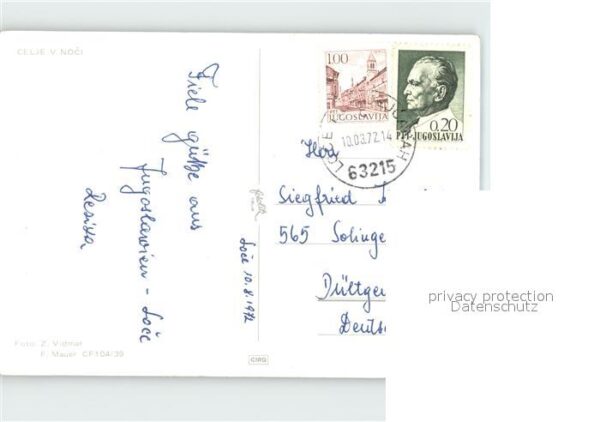 CELJE V NOČI
Viele grüße aus
Jugoslawien - Loče
Resika
Loče 10.8.1972
Foto: Z. Vidmar
F. Mauer CP104/39
CIRG
1.00
JUGOSLAVIJA
0.20
PTT JUGOSLAVIJA
10.03.72.14
63215
Herr
Siegfried
565 Solinge
Dültgen
Deuts
privacy protection
Datenschutz